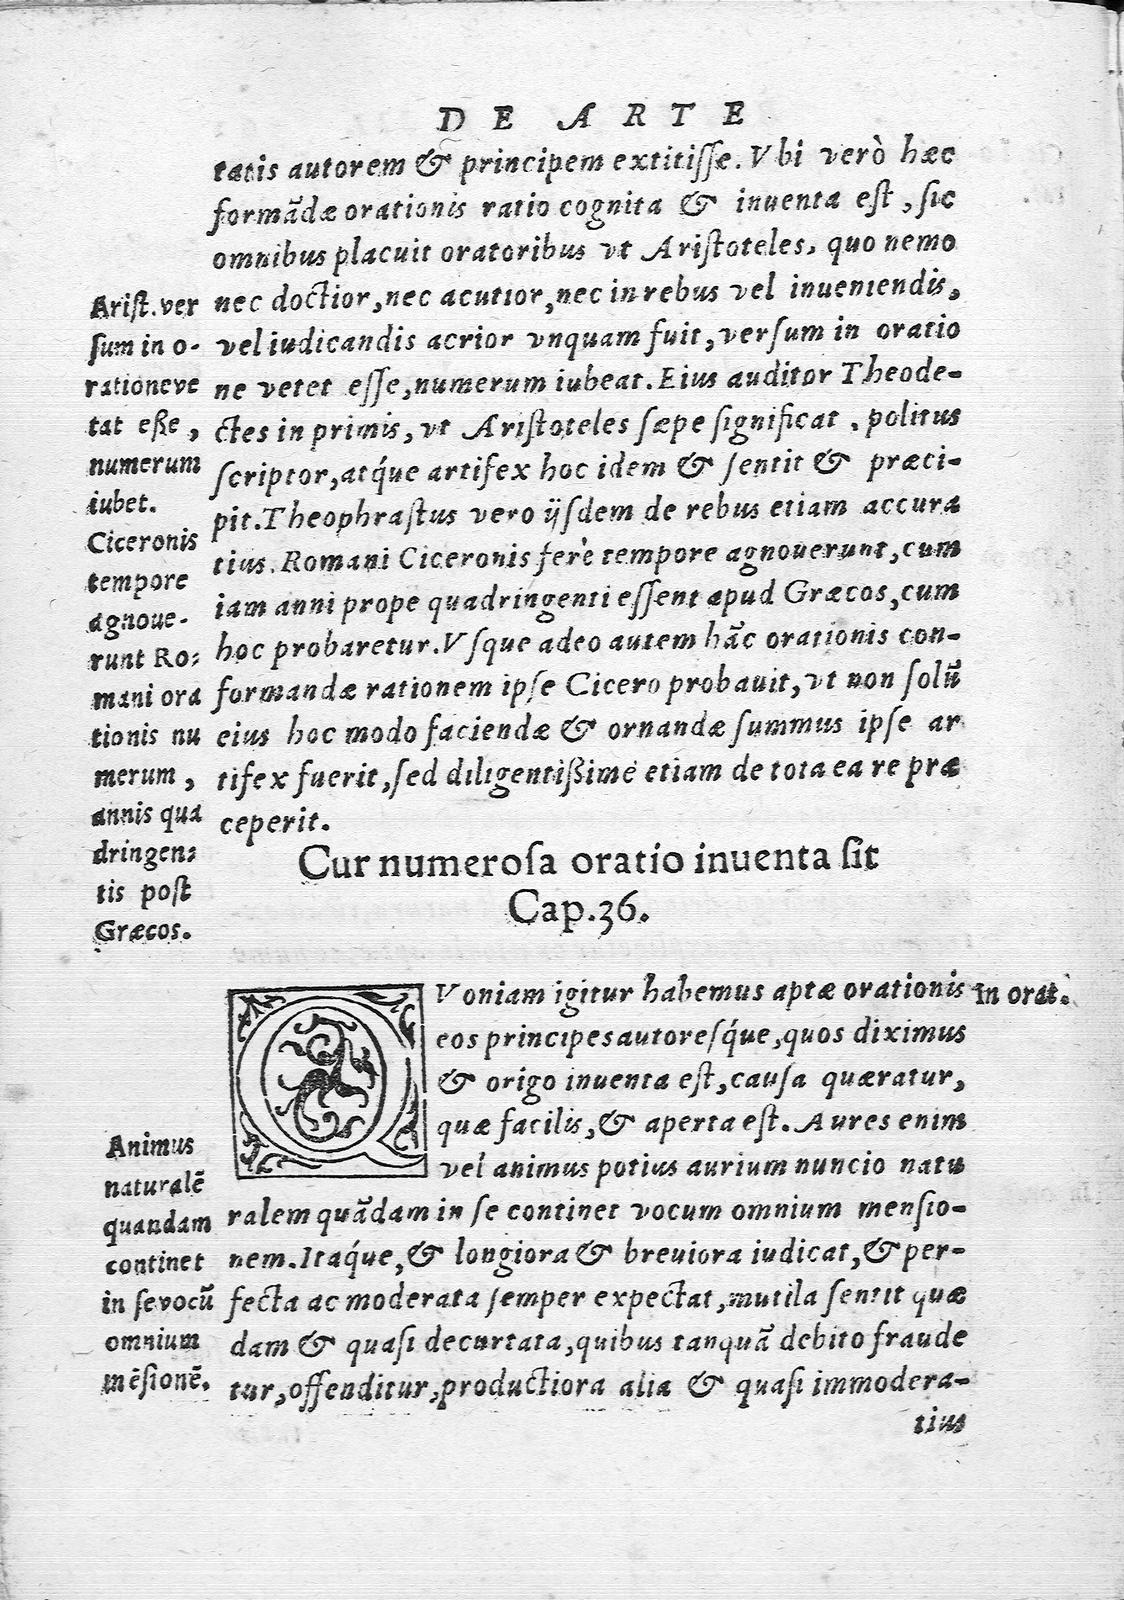 DE ARTE
tatis autorem & principem extitiſſæ. Vbi verò hæc
formãdæ orationis ratio cognita & inuenta eſt, ſic
omnibus placuit oratoribus vt Ariſtoteles, quo nemo
nec doctior, nec acutior, nec in rebus vel inueniendis,
vel iudicandis acrior vnquam fuit, verſum in oratio
ne vetet eſſe, numerum iubeat. Eius auditor Theode-
ctes in primis, vt Ariſtoteles ſæpe ſignificat, politus
ſcriptor, atq́ue artifex hoc idem & ſentit & præci-
pit. Theophraſtus vero ijſdem de rebus etiam accura
tius. Romani Ciceronis ferè tempore agnouerunt, cum
iam anni prope quadringenti eſſent apud Græcos, cum
hoc probaretur. Vſque adeo autem hãc orationis con-
formandæ rationem ipſe Cicero probauit, vt non ſolũ
eius hoc modo faciendæ & ornandæ ſummus ipſe ar
tifex fuerit, ſed diligentißimè etiam de tota ea re præ
ceperit.
Ariſt. ver
ſum in o-
rationeve
tat eße,
numerum
iubet.
Ciceronis
tempore
agnoue-
runt Ro-
mani ora
tionis nu
merum,
annis qua
dringen-
tis poſt
Græcos.
Cur numeroſa oratio inuenta ſit
Cap. 36.
QVoniam igitur habemus aptæ orationis
eos principes autoreſq́ue, quos diximus
& origo inuenta eſt, cauſa quæratur,
quæ facilis, & aperta eſt. Aures enim
vel animus potius aurium nuncio natu
ralem quãdam in ſe continet vocum omnium menſio-
nem. Itaq́ue, & longiora & breuiora iudicat, & per-
fecta ac moderata ſemper expectat, mutila ſentit quæ
dam & quaſi decurtata, quibus tanquã debito fraude
tur, offenditur, productiora alia & quaſi immodera-
tius
In orat.
Animus
naturalẽ
quandam
continet
in ſevocũ
omnium
mẽſionẽ.